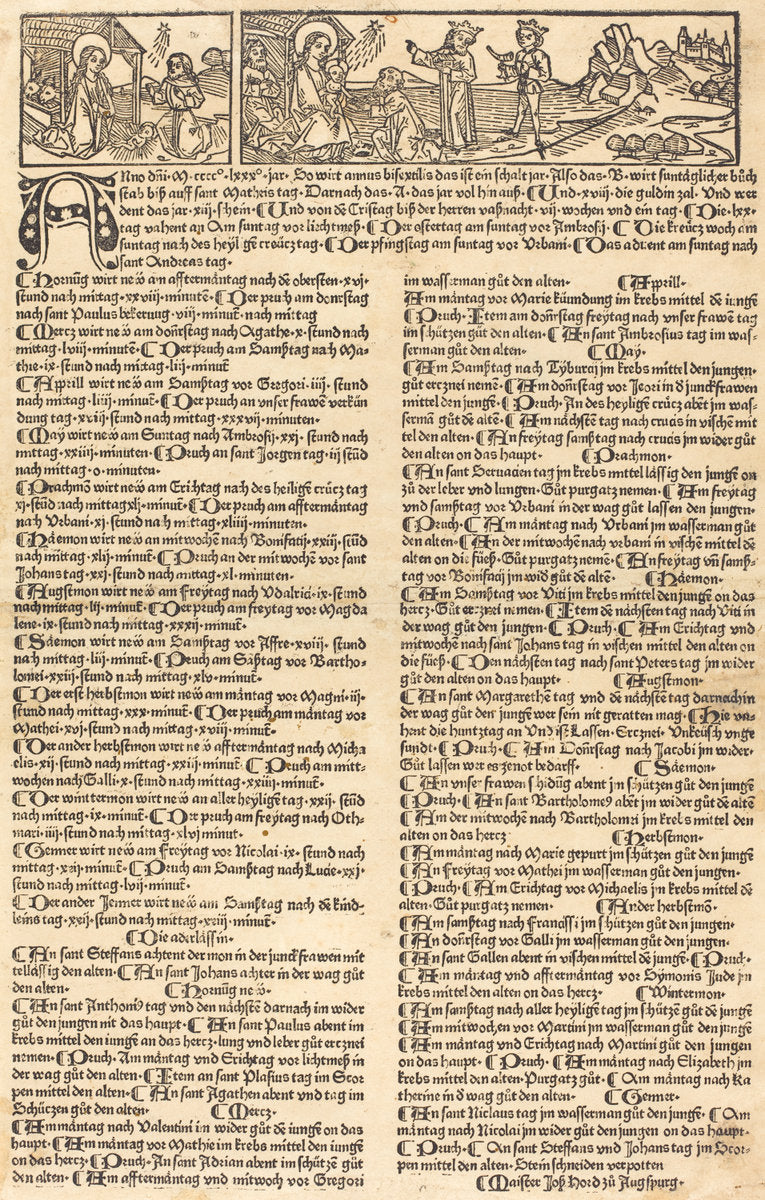 ANno dñi·M·cccc°·lxxx°·jar·So wirt annus bisextilis das ist ein schalt jar·Also das·B·wirt suntäglicher bůch
stab biß auff sant Matheis tag·Darnach das·A·das jar vol hin auß·Und·xviii·die guldin zal·Vnd wer
dent das jar·xiij·shein·Und von dē Cristag biß der herren vaßnacht·vij·wochen und ein tag·Die·lxx·
tag vahent an Am suntag vor liechtmeß·Der ostertag am suntag vor Ambrosij·Die kreücz woch am
suntag nach des heyligē creücz tag·Der pfingstag am suntag vor Urbani·Das advent am suntag nach
sant Andreas tag·
Hornūg wirt new an afftermāntag nach dē obersten·xvj·
stund nach mittag·xxviii·minutē·Der pruch am donrstag
nach sant Paulus bekerung·viii·minutē·nach mittag
Mercz wirt new am doñrstag nach Agathe·x·stund nach
mittag·lviii·minuten·Der pruch am Samßtag nach Ma-
thie·ix·stund nach mittag·liij·minutē
Apprill wirt new am Samßtag vor Gregori·iiij·stund
nach mittag·liiij·minutē·Der pruch an unser frawen verkün
dung tag·xxiii·stund nach mittag·xxxvij·minuten·
May wirt new am Suntag nach Ambrosij·xxj·stund nach
mittag·xxiiij·minuten·Pruch an sant Jorgen tag·iij stūd
nach mittag·o·minuten·
Prachmō wirt new am Erichtag nach des heiligē crücz tag
xj·stūd nach mittag xlj·minutē·Der pruch am afftermāntag
nach Urbani·xj·stund nach mittag·xliiij·minuten·
Häemon wirt new an mitwochen nach Bonifatij·xxiij·stūd
nach mittag·xlij·minutē·Pruch an der mitwochē vor sant
Johans tag·xxj·stund nach mittag·xl·minuten·
Augstmon wirt new am freytag nach Udalrici·ix·stund
nach mittag·lij·minutē·Der pruch am freytag vor Magda
lene·ix·stund nach mittag·xxxij·minutē·
Säemon wirt new am Samßtag vor Affre·xviii·stund
nach mittag·liij·minutē·Pruch am Sāßtag vor Bartho-
lomei·xxiij·stund nach mittag·xlv·minutē·
Der erst herbstmon wirt new am māntag vor Magni·iij·
stund nach mittag·xxx·minutē·Der pruch am māntag vor
Mathei·xvj·stund nach mittag·xviii·minutē·
Der ander herbstmon wirt new afftermāntag nach Micha
elis·xij·stund nach mittag·xxiij·minutē·Pruch am mitt-
wochen nach Galli·x·stund nach mittag·xxiiij·minutē·
Der wintermon wirt new an aller heyligē tag·xxij·stūd
nach mittag·ix·minutē·Der pruch am freytag nach Oth-
mari·iij·stund nach mittag·xlvj minut·
Genner wirt new am freytag vor Nicolai·ix·stund nach
mittag·xxii·minutē·Pruch am Samßtag nach Lucie·xxj·
stund nach mittag·lvij·minutē·
Der ander Jenner wirt new am Samßtag nach dē kind-
leins tag·xxij·stund nach mittag·xxiij·minutē·
Die aderlässin·
An sant Steffans achtent der mon in der junckfrawen mit
tellässig den alten·An sant Johans achter in der wag gůt
den alten·Hornūg new·
An sant Anthonij tag vnd den nächstē darnach im wider
gůt den jungen nit das haupt·An sant Paulus abent im
krebs mittel den iungē an das hercz·lung vnd leber gůt ercznei
nemen·Pruch·Am māntag vnd Erichtag vor liechtmeß in
der wag gůt den alten·Item an sant Plasius tag im Scor
pen mittel den alten·An sant Agathen abent vnd tag im
Schüczen gůt den alten·Mercz·
Am māntag nach Valentini im wider gůt dē iungē on das
haupt·Am māntag vor Mathie im krebs mittel den iungē
on das hercz·Pruch·An sant Adrian abent im schützē gůt
den alten·Am afftermāntag vnd mitwoch vor Gregori
im wasserman gůt den alten·Apprill·
Am māntag vor Marie küundung im krebs mittel dē iungē
Pruch·Item am donrstag freytag nach vnser frawē tag
im schützen gůt den alten·An sant Ambrosius tag im was-
serman gůt den alten·May·
Am Samßtag nach Tyburcij jm krebs mittel den jungen·
gůt ercznei nemē·Am doñrstag vor Jeori in d junckfrawen
mittel den jungē·Pruch·An des heyligē crücz abēt jm was-
sermā gůt dē alten·Am nächsten tag nach crucis in vischē mit
tel den alten·An freytag samßtag nach crucis im wider gůt
den alten on das haupt·Prachmon·
An sant Seruacien tag jm krebs mittel lässig den jungē on
zů der leber vnd lungen·Gůt purgatz nemen·Am freytag
vnd samßtag vor Vrbani in der wag gůt lassen den jungen·
Pruch·Am māntag nach Vrbani jm wasserman gůt
den alten·An der mitwochen nach vrbani in vischē mittel dē
alten on die füeß·Gůt purgatz nemē·An freytag vñ samß-
tag vor Bonifacij jm wid gůt dē altē·Häemon·
Am Samßtag vor Viti jm krebs mittel den jungē on das
hercz·Gůt ercznei nemen·Item dē nächsten tag nach Viti in
der wag gůt den jungen·Pruch·Am Erichtag vnd
mitwochē nach sant Johans tag in vischen mittel den alten on
die füeß·Den nächsten tag nach sant Peters tag jm wider
gůt den alten on das haupt·Augstmon·
An sant Margarethē tag vnd dē nächstē tag darnach in
der wag gůt den jungē wer sein nit geratten mag·Hie va-
hent die hunßtag an Vnd ist Lassen·Ercznei·Vnkeüsch vnge
sundt·Pruch·Am Doñrstag nach Jacobi jm wider·
Gůt lassen wer es ze not bedarff·Säemon·
An vnser frawen shidūg abent jm schützen gůt den jungē
Pruch·An sant Bartholomeꝰ abēt jm wider gůt dē altē
Am der mitwochen nach Bartholomei jm krebs mittel den
alten on das hercz Herbstmon·
Am māntag nach Marie gepurt jm schützen gůt den jungē
An freytag vor Mathei jm wasserman gůt den jungen·
Pruch·Am Erichtag vor Michaelis jm krebs mittel dē
alten·Gůt purgatz nemen·Ander herbstmō·
Am samßtag nach Francisci jm schützen gůt den jungen·
An doñrstag vor Galli jm wasserman gůt den jungen·
An sant Gallen abent in vischen mittel dē jungē·Pruch·
Am māntag vnd afftermāntag vor Symonis Jude jm
krebs mittel den alten on das hercz·Wintermon·
Am samßtag nach aller heyligē tag jm schützē gůt dē jungē
Am mitwochen vor Martini jm wasserman gůt den jungē
Am māntag vnd Erichtag nach Martini gůt den jungen
on das haupt·Pruch·Am māntag nach Elizabeth jm
krebs mittel den alten·Purgatz gůt·Am māntag nach Ka
therine in d wag gůt den alten·Genner·
An sant Niclaus tag jm wasserman gůt den jungē·Am
māntag nach Nicolai jm wider gůt den jungen on das haupt·
Pruch·An sant Steffans vnd Johans tag jm Scor-
pen mittel den alten·Steinschneiden verpotten
Maister Joß Hord zů Augspurg·